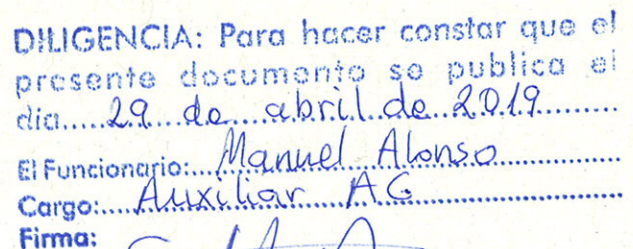 DILIGENCIA: Para hacer constar que el
presente documento se publica el
día.....29 de abril de 2019..........
El Funcionario:....Manuel Alonso................
Cargo:.....Auxiliar AG..............................
Firma: